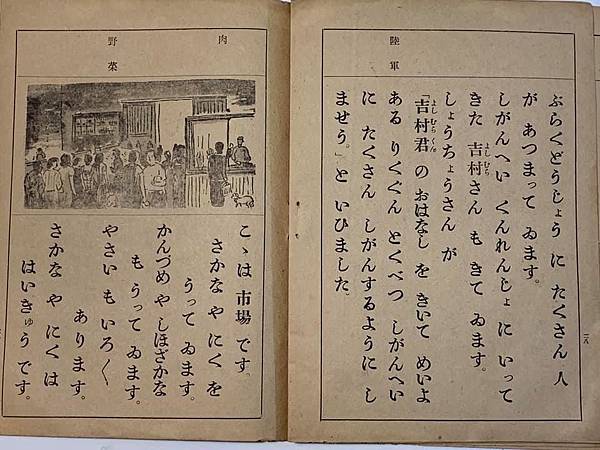 陸軍
ぶらくどうじょう に たくさん 人
が あつまって ゐます。
しがんへい くんれんじょ に いって
きた 吉村さん も きて ゐます。
しょうちょうさん が
「吉村君 の おはなし を きいて めいよ
ある りくぐん とくべつ しがんへい
に たくさん しがんするように し
ませう。」と いひました。
二八
肉
野菜
こゝは 市場 です。
さかな や にく を
うって ゐます。
かんづめ や しほざかな
も うって ゐます。
やさい も いろ〱
あります。
さかな や にく は
はいきゅう です。